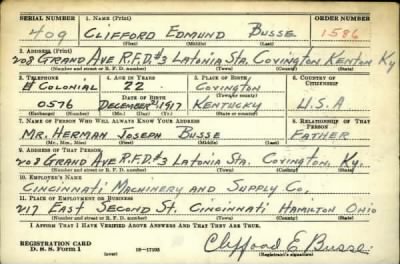 SERIAL NUMBER 1. NAME (Print) ORDER NUMBER
409 CLIFFORD EDMUND BUSSE 1586
(First) (Middle) (Last)
2. ADDRESS (Print)
208 GRAND AVE R.F.D.#3 LATONIA STA. COVINGTON KENTON KY
(Number and street or R. F. D. number) (Town) (County) (State)
3. TELEPHONE 4. AGE IN YEARS 5. PLACE OF BIRTH 6. COUNTRY OF CITIZENSHIP
COLONIAL 22 COVINGTON
(Town or county)
DATE OF BIRTH
0576 DECEMBER 1917 KENTUCKY U.S.A
(Exchange) (Number) (Mo.) (Day) (Yr.) (State or country)
7. NAME OF PERSON WHO WILL ALWAYS KNOW YOUR ADDRESS 8. RELATIONSHIP OF THAT PERSON
MR. HERMAN JOSEPH BUSSE FATHER
(Mr., Mrs., Miss) (First) (Middle) (Last)
9. ADDRESS OF THAT PERSON
208 GRAND AVE R.F.D.#3 LATONIA STA. COVINGTON, KY.
(Number and street or R. F. D. number) (Town) (County) (State)
10. EMPLOYER'S NAME
CINCINNATI MACHINERY AND SUPPLY CO.
11. PLACE OF EMPLOYMENT OR BUSINESS
217 EAST SECOND ST. CINCINNATI HAMILTON OHIO
(Number and street or R. F. D. number) (Town) (County) (State)
I AFFIRM THAT I HAVE VERIFIED ABOVE ANSWERS AND THAT THEY ARE TRUE.
REGISTRATION CARD
D. S. S. FORM 1 (over) 16-17105 Clifford E. Busse
(Registrant's signature)